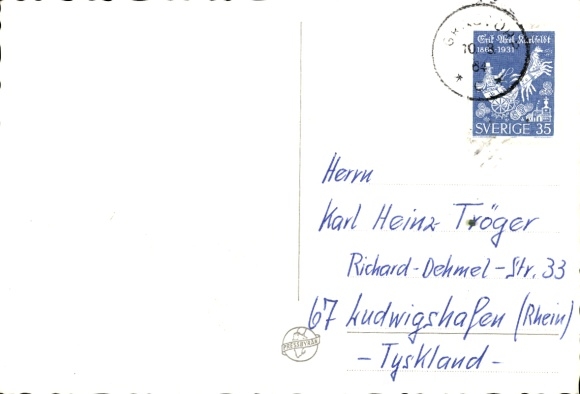 Erik Axel Karlfeldt
1864-1931
10
64
SVERIGE 35
Herrn
Karl Heinz Tröger
Richard-Dehmel-Str. 33
67 Ludwigshafen (Rhein)
- Tyskland -